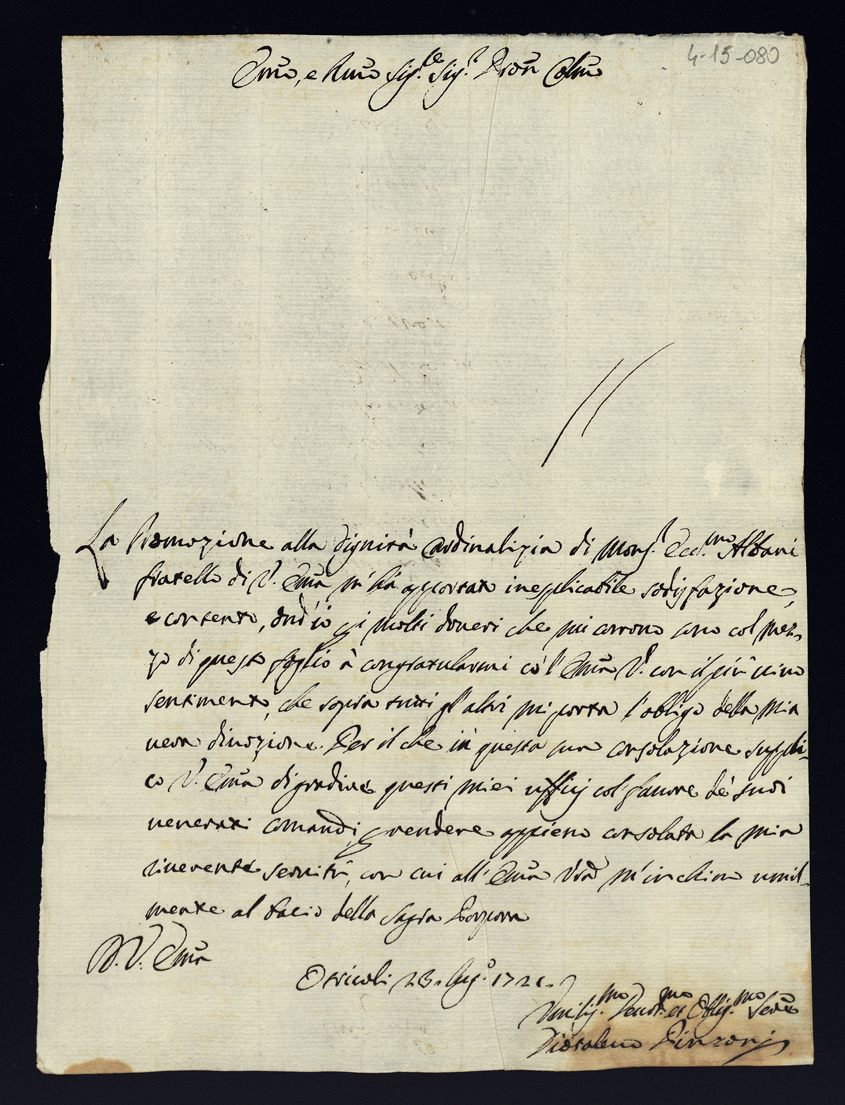 4-15-080
Emõ, e Rmõ Sig.re Sig.r Pron Colmõ
La Promozione alla dignità Cardinalizia di Mons.r Ecc.mo Albani
fratello di V. Emã m'hà apportato inesplicabile sodisfazione,
e contento, ond'io p i molti doveri che mi corrono sono col mez-
zo di questo foglio à congratularmi co l'Emã V. con il più vivo
sentimento, che sopra tutti gl'altri mi porta l'obligo della mia
vera divozione. Per il che in questa sua consolazione suppli-
co V. Emã di gradire questi miei ufficij col favore de' suoi
venerati comandi, p rendere appieno consolata la mia
riverente servitù, con cui all'Emã Vrã m'inchino umil-
mente al bacio della Sagra Porpora
D. V. Emã
Otricoli 23. Lug.o 1721.
Umiliss.mo Devot.mo et Oblig.mo Serv.e
Pinzoni